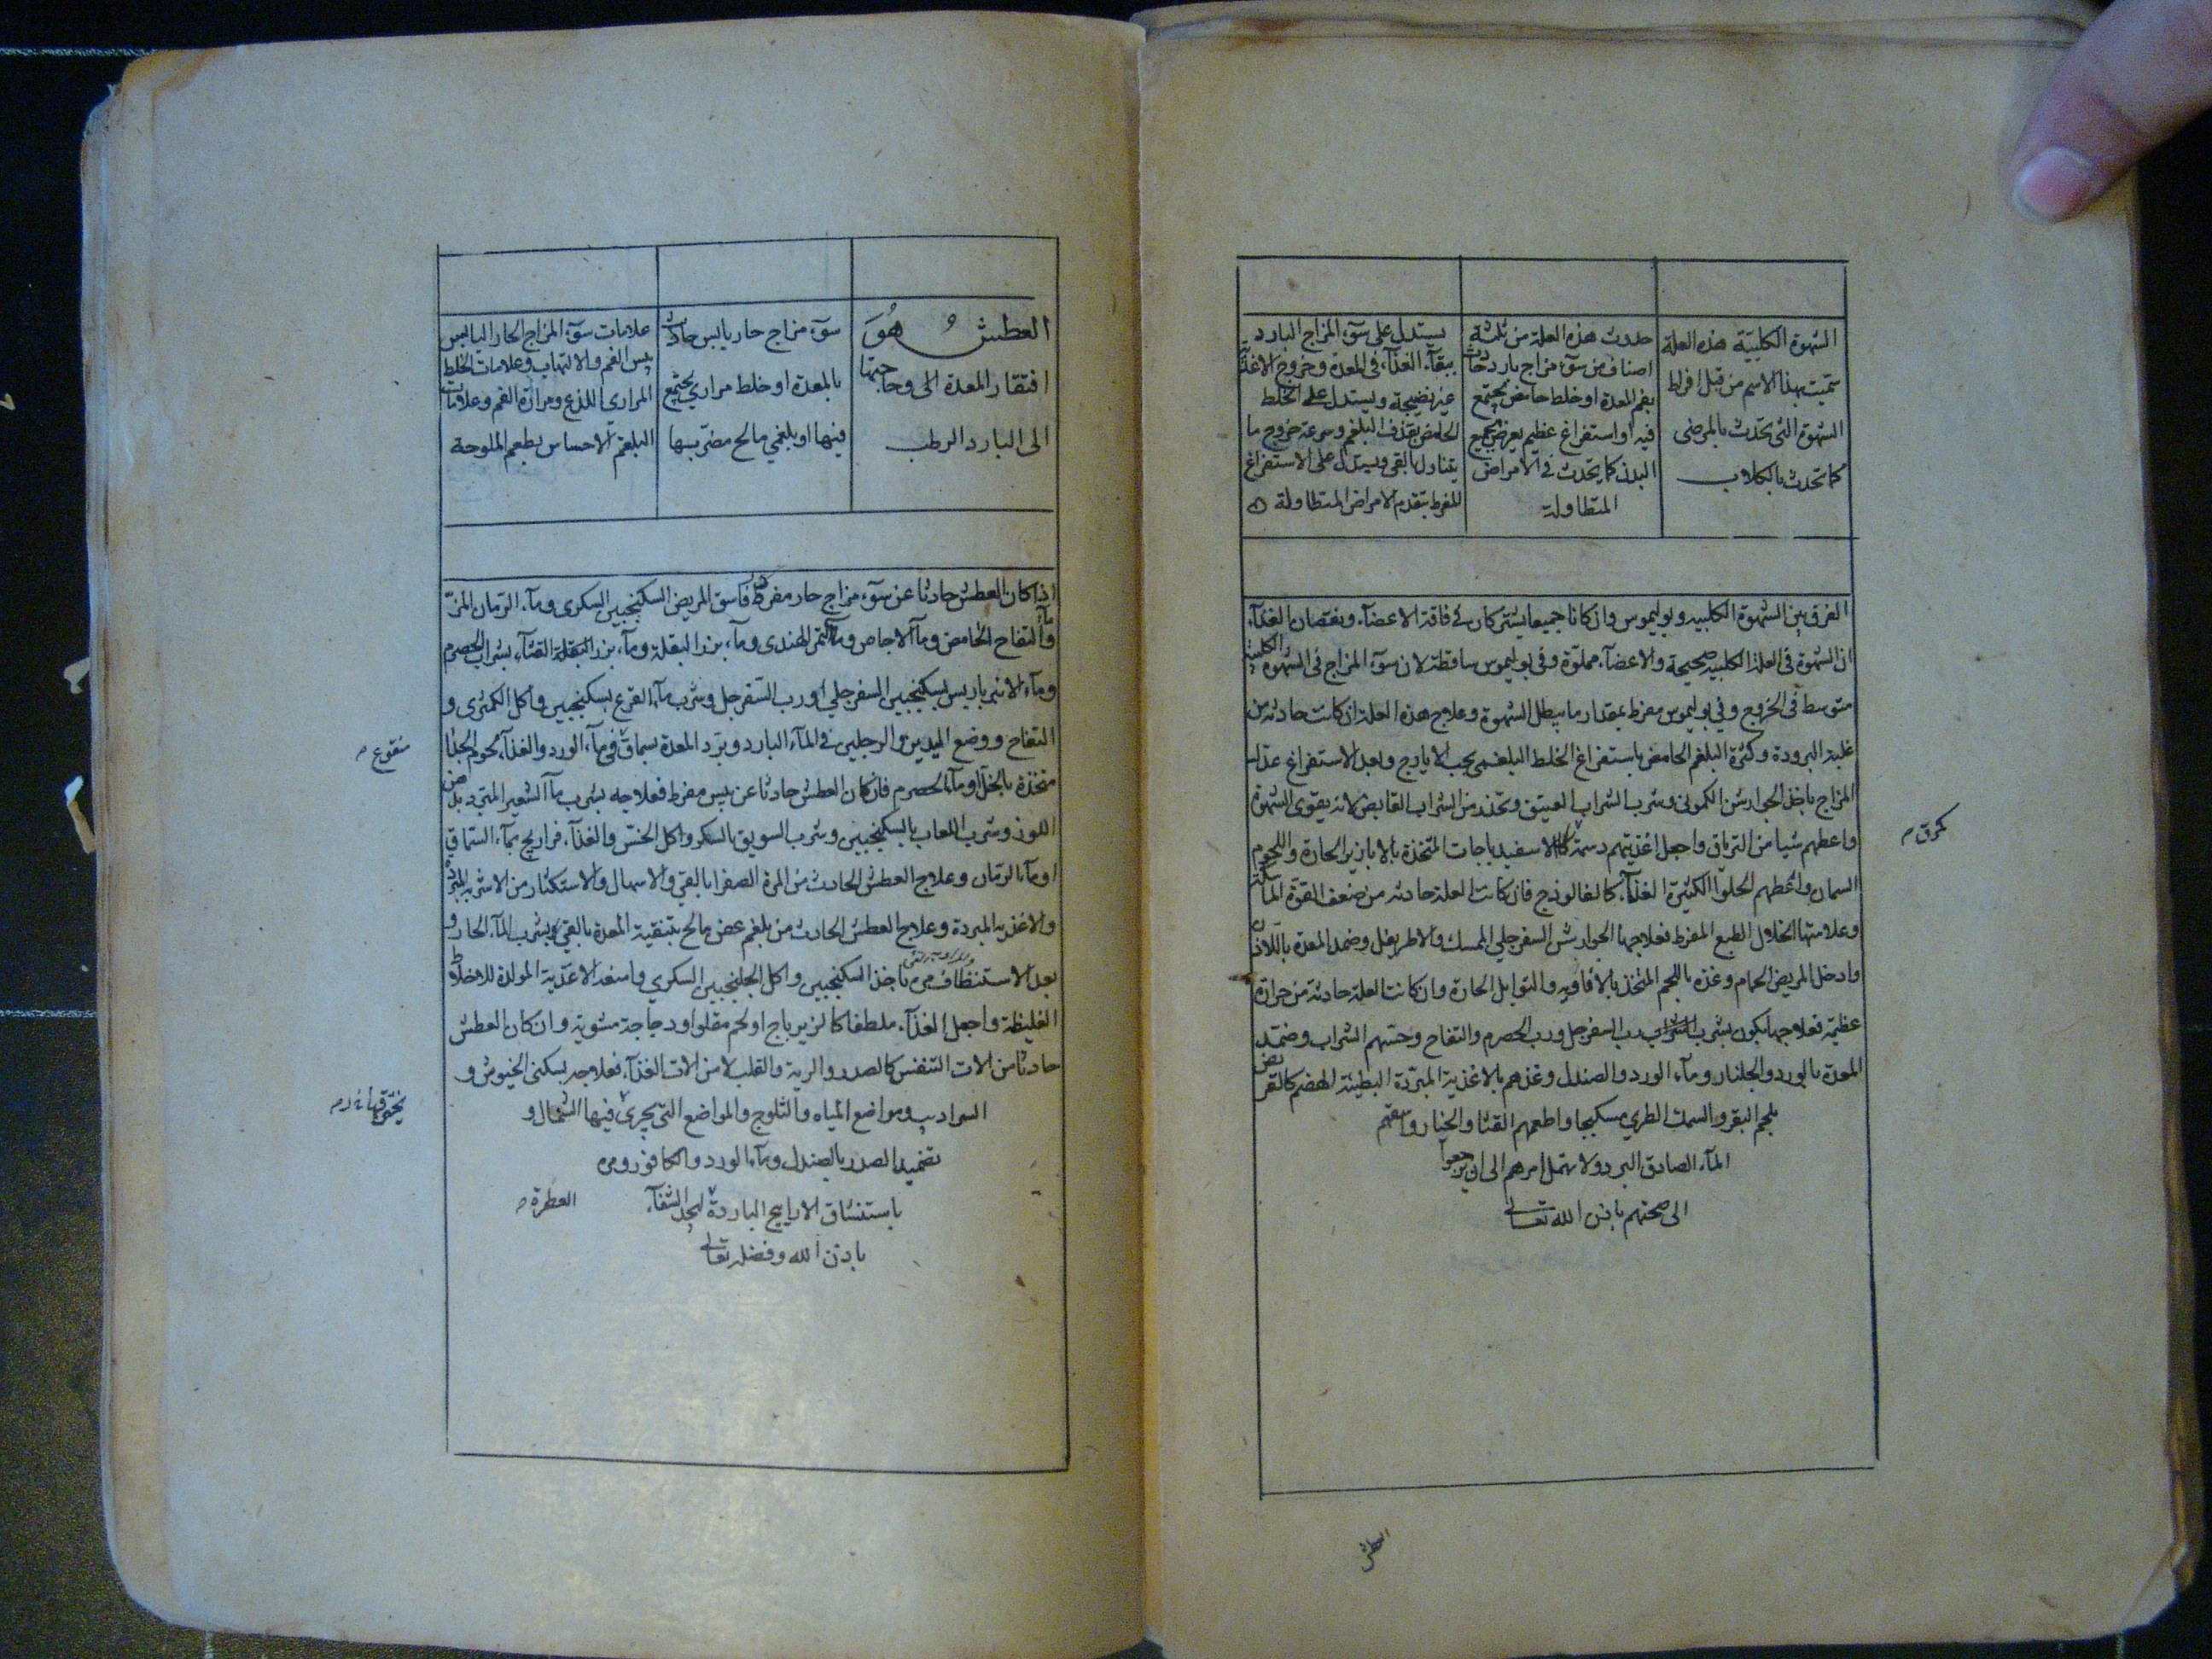 الشهوة الكلبية هذه العلة
سميت بهذا الاسم من قبل افراط
الشهوة التى تحدث بالمرضى
كما تحدث بالكلاب
حدوث هذه العلة من ثلثة
اصناف من سوء مزاج بارد حادث
بفم المعدة او خلط حامض يجتمع
فيه او استفراغ عظيم يعرض لجميع
البدن كما يحدث فى الامراض
المتطاولة
يستدل على سوء المزاج البارد
ببقاء الغذاء فى المعدة وخروج الاغذية
غير نضيجة ويستدل على الخلط
الحامض بقذف البلغم وسرعة خروج ما
يتناول بالقى ويستدل على الاستفراغ
المفرط بتقدم الامراض المتطاولة
الفرق بين الشهوة الكلبيه وبوليموس وان كانا جميعا يشتركان فى فاقة الاعضاء ونقصان الغذاء
ان الشهوة فى العلة الكلبية صحيحة والاعضاء مملوة وفى بوليموس ساقطة لان سوء المزاج فى الشهوة الكلبية
متوسط فى الخروج وفى بوليموس مفرط بمقدار ما يبطل الشهوة وعلاج هذه العلة ان كانت حادثه من
غلبة البرودة وكثرة البلغم الحامض باستفراغ الخلط البلغمى بحب الايارج وبعد الاستفراغ عدل
المزاج باخذ الجوارشن الكمونى وشرب الشراب العتيق وتحذر من الشراب القابض لانه يقوى الشهوة
واعطهم شيا من الترياق واجعل اغذيتهم دسمة كالاسفيدباجات المتخذة بالابازير الحارة واللحوم
كمرق
السمان واعطهم الحلوا الكثيرة الغذاء كالفالوذج فان كانت العلة حادثه من ضعف القوة الماسكة
وعلامتها انحلال الطبع المفرط فعلاجها الجوارشن السفرجلي الممسك والاطريفل وضمد المعدة باللاذن
وادخل المريض الحمام وغذه باللحم المتخذ بالافاويه والتوابل الحارة وان كانت العلة حادثة من حرارة
عظيمة فعلاجها يكون بشرب رب السفرجل ورب الحصرم والتفاح وجنبهم الشراب وضمد
المعدة بالورد والجلنار وماء الورد والصندل وغذهم بالاغذية المبردة البطيئة الهضم كالقريض
بلحم البقر والسمك الطري مسكبجا واطعمهم القثا والخيار واسقهم
الماء الصادق البرد ولا تهمل امرهم الى ان يرجعوا
الى صحتهم باذن الله تعالى
العطش
العطش هُوَ
افتقار المعدة الى وحاجتها
الى البارد الرطب
سوء مزاج حار يابس حادث
بالمعدة او خلط مراري يجتمع
فيها او بلغمي مالح مضر بها
علامات سوء المزاج الحار اليابس
يبس الفم والالتهاب وعلامات الخلط
المرارى اللذع ومرارة الفم وعلامات
البلغم الاحساس بطعم الملوحة
اذا كان العطش حادثا عن سوء مزاج حار مفرط فاسق المريض السكنجبين السكرى وماء الرمان المز
وماء التفاح الحامض وماء الاجاص وماء التمر الهندى وماء بزر البقلة وماء بزر القثاء بشراب الحصرم
وماء الانبرباريس بسكنجبين السفرجلي او رب السفرجل وشرب ماء القرع بسكنجبين واكل الكمثرى و
التفاح ووضع اليدين والرجلين فى الماء البارد وبرد المعدة بسماق فى ماء الورد والغذاء لحوم الجدا
منقوع
متخذة بالخل او ماء الحصرم فان كان العطش حادثا عن يبس مفرط فعلاجه بشرب ماء الشعير المبرد بدهن
اللوز وشرب اللعاب بالسكنجبين وشرب السويق بالسكر واكل الخس والغذاء فراريج بماء السماق
او ماء الرمان وعلاج العطش الحادث من المرة الصفرا بالقى والاسهال والاستكثار من الاشربه المبردة
والاغذيه المبردة وعلاج العطش الحادث من بلغم عفن مالح بتنقية المعدة بالقي وبشرب الماء الحار و
بعد الاستنظاف مره باخذ السكنجبين واكل الجلنجبين السكري وامنعه الاغذية المولدة للاخلاط
الغليظة واجعل الغذاء ملطفا كالزيرباج او لحم مقلو او دجاجة مشوية وان كان العطش
حادثا من الات التنفس كالصدر والرية والقلب لا من الات الغذاء فعلاجه بسكنى الخيوش و
السراديب ومواضع المياه والثلوج والمواضع التى يجرى فيها الشمال و
تضميد الصدر بالصندل وماء الورد والكافور ومره
باستنشاق الاراييح الباردة ليجد الشفاء
العطرة
باذن الله وفضله تعالى